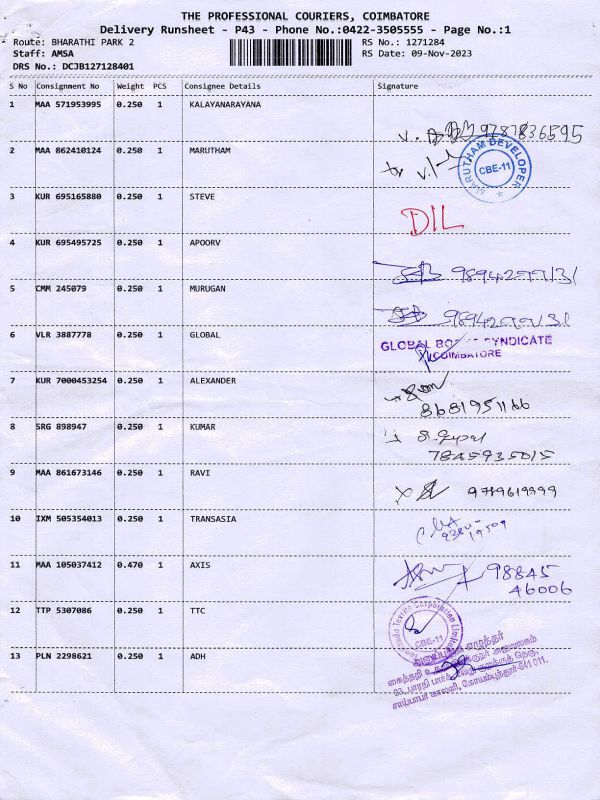 THE PROFESSIONAL COURIERS, COIMBATORE
Delivery Runsheet - P43 - Phone No.:0422-3505555 - Page No.:1
Route: BHARATHI PARK 2 RS No.: 1271284
Staff: AMSA RS Date: 09-Nov-2023
DRS No.: DCJB127128401
S No Consignment No Weight PCS Consignee Details Signature
1 MAA 571953995 0.250 1 KALAYANARAYANA
9787836595
2 MAA 862410124 0.250 1 MARUTHAM
MARUTHAM DEVELOPER
CBE-11
3 KUR 695165880 0.250 1 STEVE
DIL
4 KUR 695495725 0.250 1 APOORV
5 CMM 245079 0.250 1 MURUGAN
6 VLR 3887778 0.250 1 GLOBAL
GLOBAL SYNDICATE
COIMBATORE
7 KUR 7000453254 0.250 1 ALEXANDER
8681951166
8 SRG 898947 0.250 1 KUMAR
7845935015
9 MAA 861673146 0.250 1 RAVI
10 IXM 505354013 0.250 1 TRANSASIA
11 MAA 105037412 0.470 1 AXIS
98845
46006
12 TTP 5307086 0.250 1 TTC
Corporation Limited
CBE-11
13 PLN 2298621 0.250 1 ADH
23, பாரதி பார்க்
சாய்பாபா காலனி, கோயம்புத்தூர்-641 011.